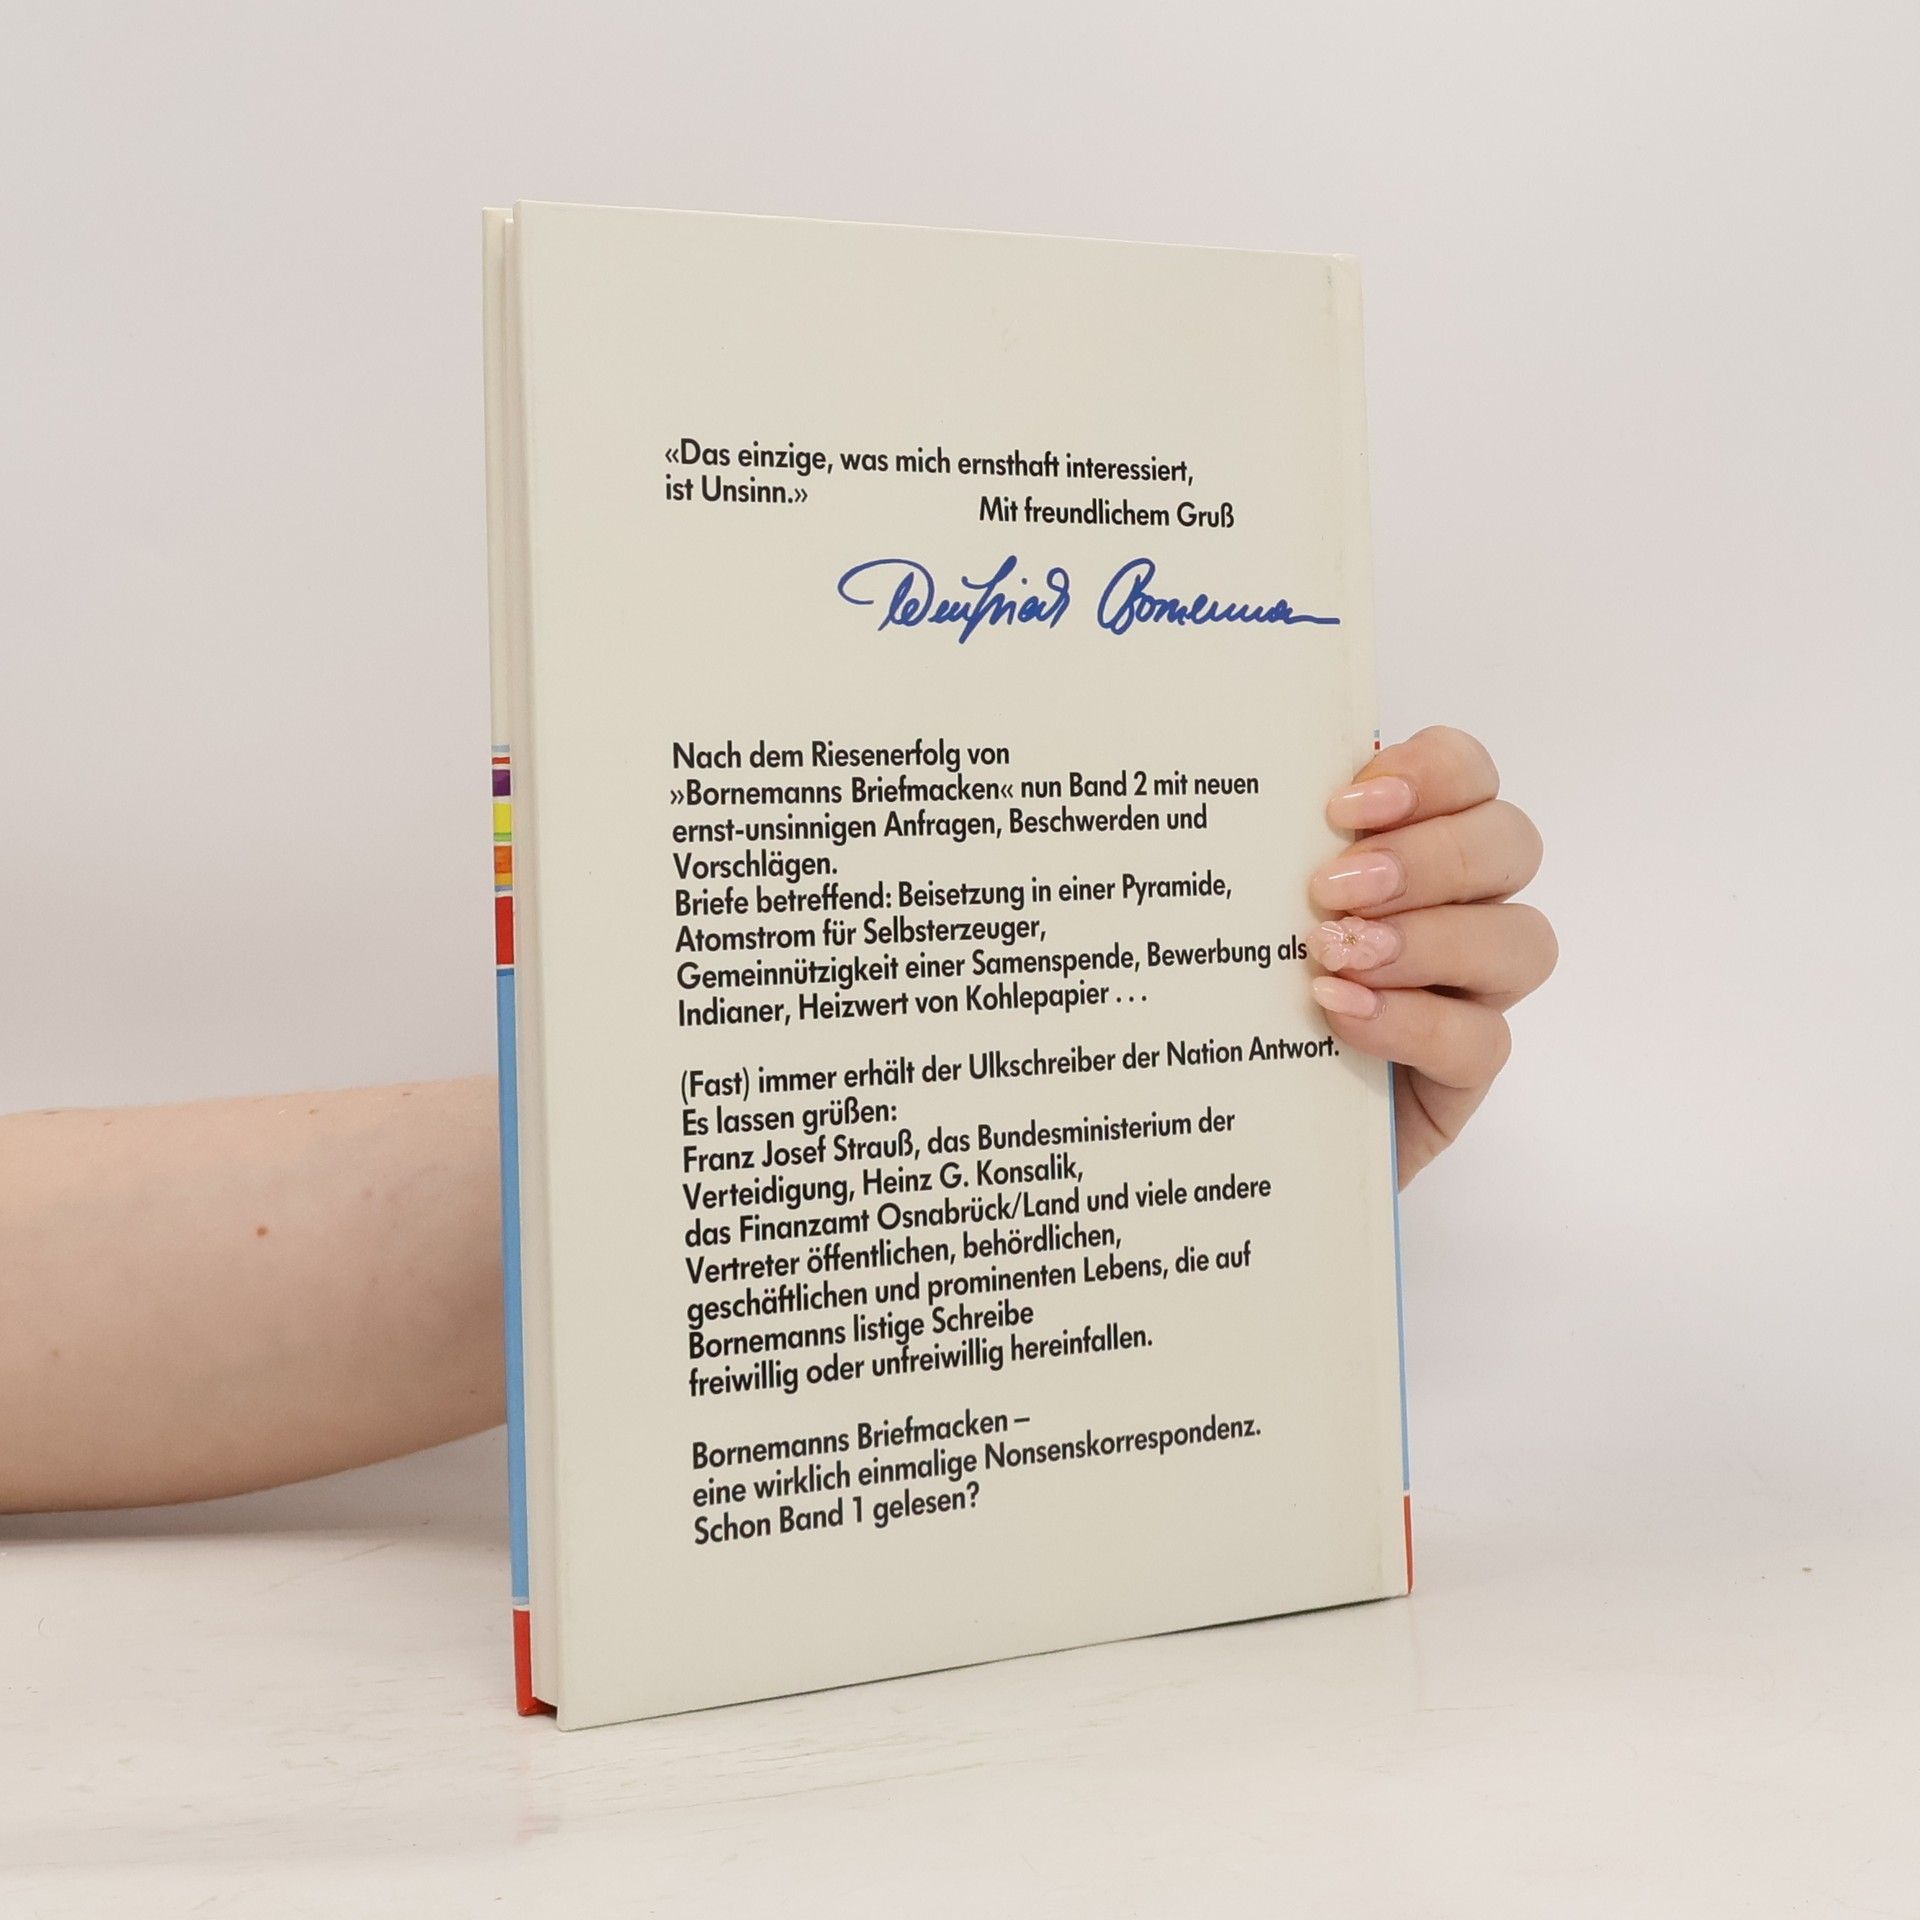 «Das einzige, was mich ernsthaft interessiert,
ist Unsinn.»
Mit freundlichem Gruß
Winfried Bornemann
Nach dem Riesenerfolg von
»Bornemanns Briefmacken« nun Band 2 mit neuen
ernst-unsinnigen Anfragen, Beschwerden und
Vorschlägen.
Briefe betreffend: Beisetzung in einer Pyramide,
Atomstrom für Selbsterzeuger,
Gemeinnützigkeit einer Samenspende, Bewerbung als
Indianer, Heizwert von Kohlepapier . . .
(Fast) immer erhält der Ulkschreiber der Nation Antwort.
Es lassen grüßen:
Franz Josef Strauß, das Bundesministerium der
Verteidigung, Heinz G. Konsalik,
das Finanzamt Osnabrück/Land und viele andere
Vertreter öffentlichen, behördlichen,
geschäftlichen und prominenten Lebens, die auf
Bornemanns listige Schreibe
freiwillig oder unfreiwillig hereinfallen.
Bornemanns Briefmacken –
eine wirklich einmalige Nonsenskorrespondenz.
Schon Band 1 gelesen?